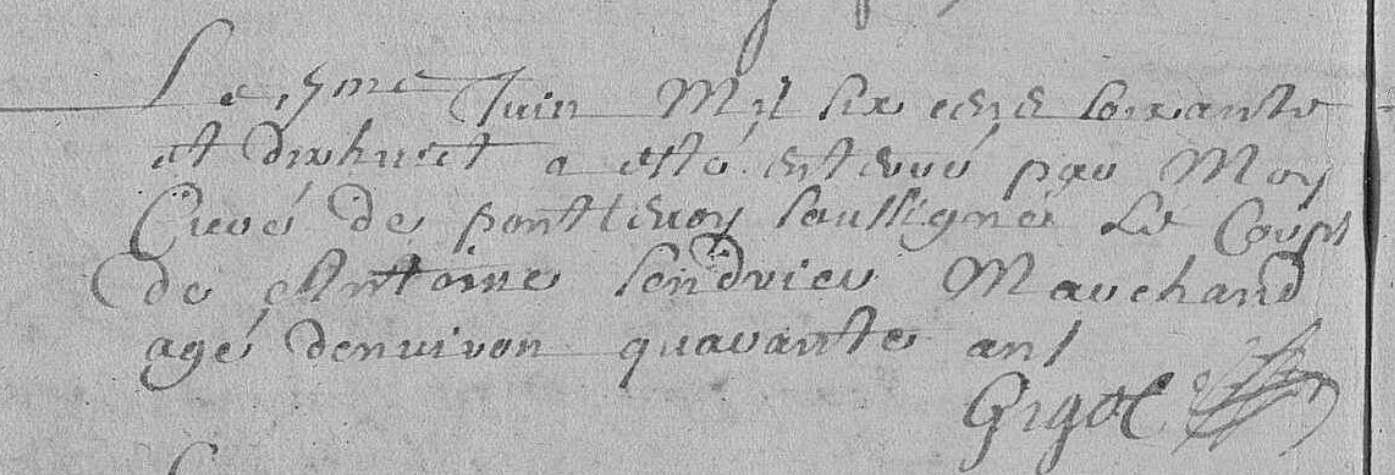 Le 5me Juin Mil six cens soixante
et dixhuict a esté enterré par Moy
Curé de pontlevoy soussigné Le Corps
de Antoine Marchand
agé denviron quarante ans
Gigot